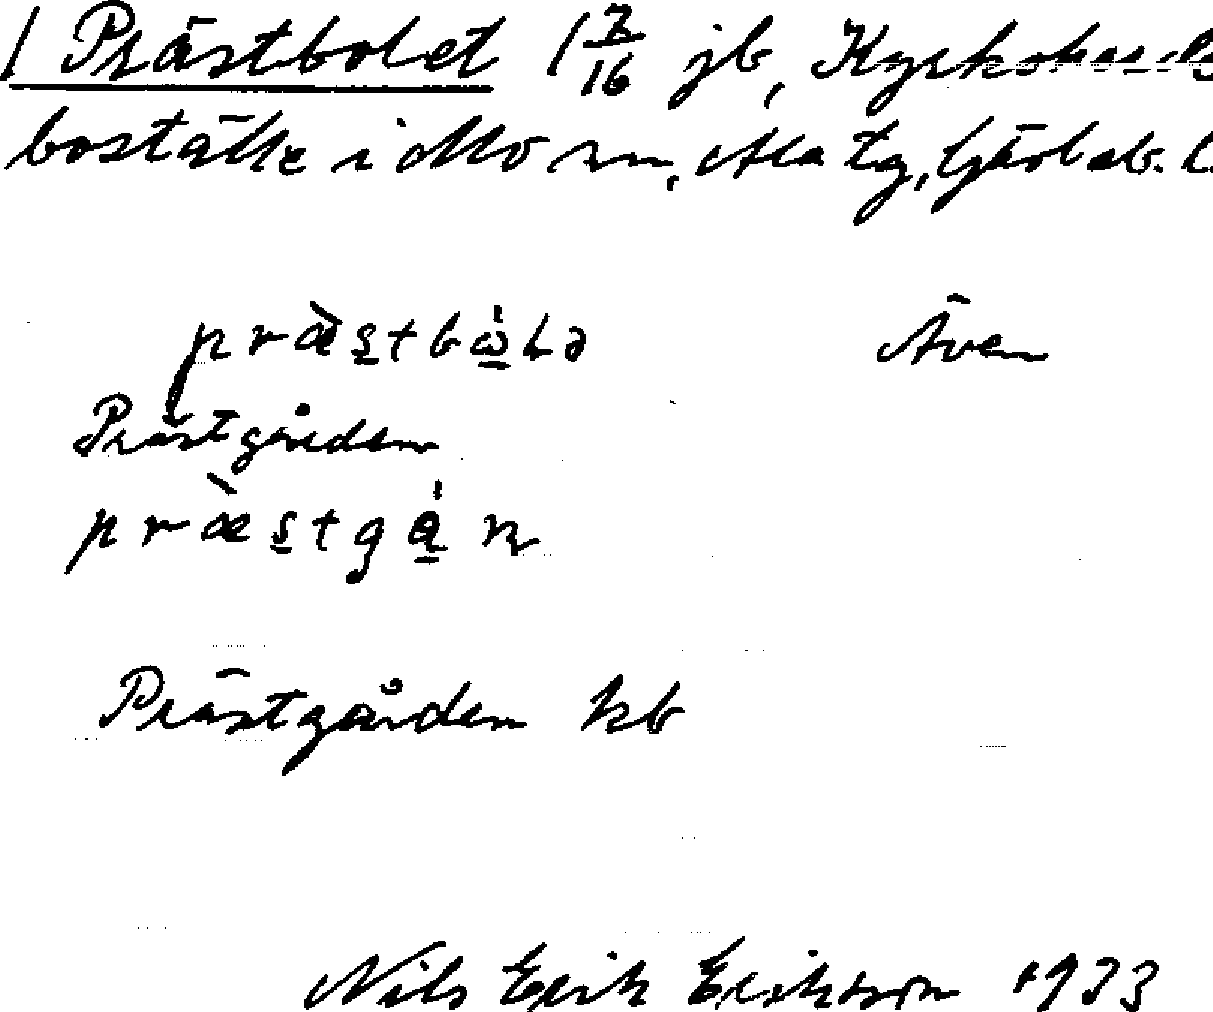 1 Prästbolet 1 7/16 jb, Kyrkoherde
boställe i Mo sn, Ala tg, Gävleb. l.
præ̀stbὼlə Även
Prästgården
præ̀stgɑ̀ n
Prästgården kb
Nils Erik Erikson 1933